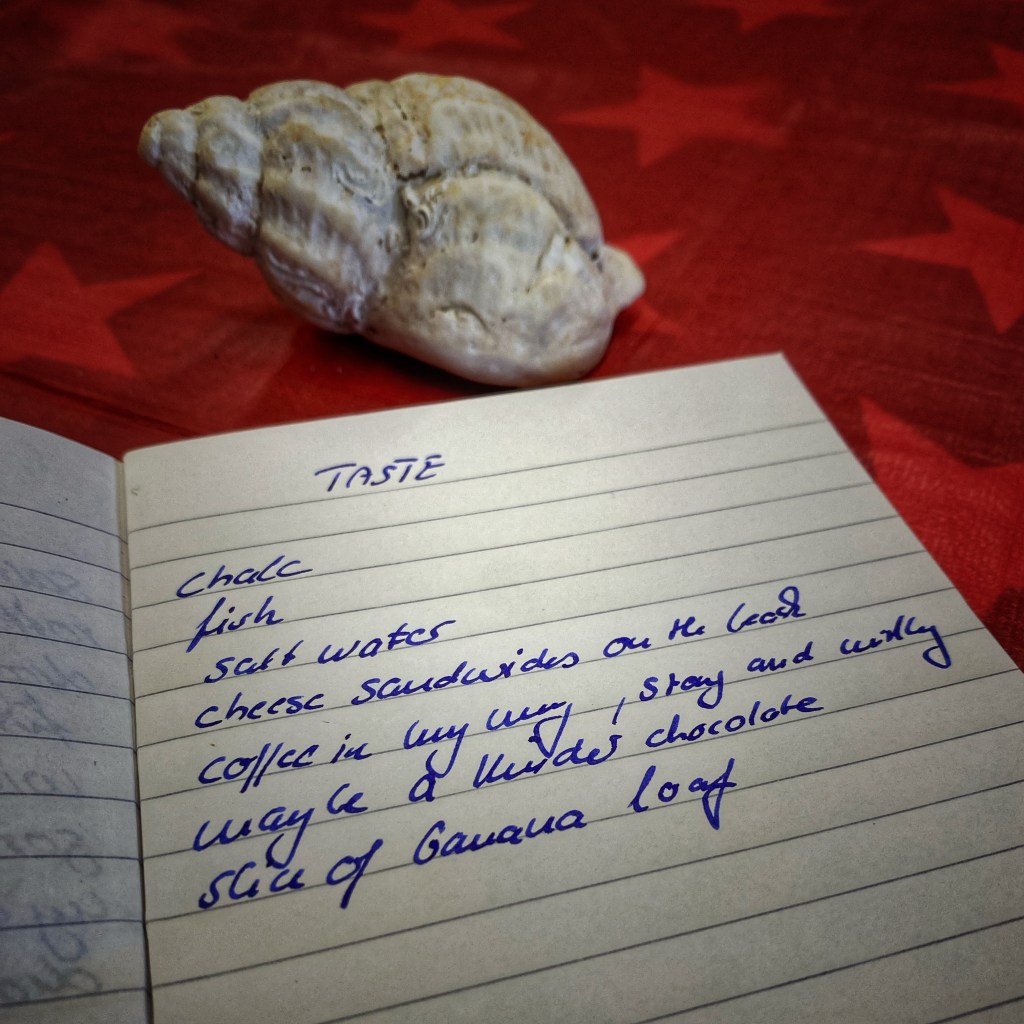 TASTE
chalc
fish
salt water
cheese sandwides on the beach
coffee in my mug, strong and milky
maybe a kinder chocolate
slice of banana loaf